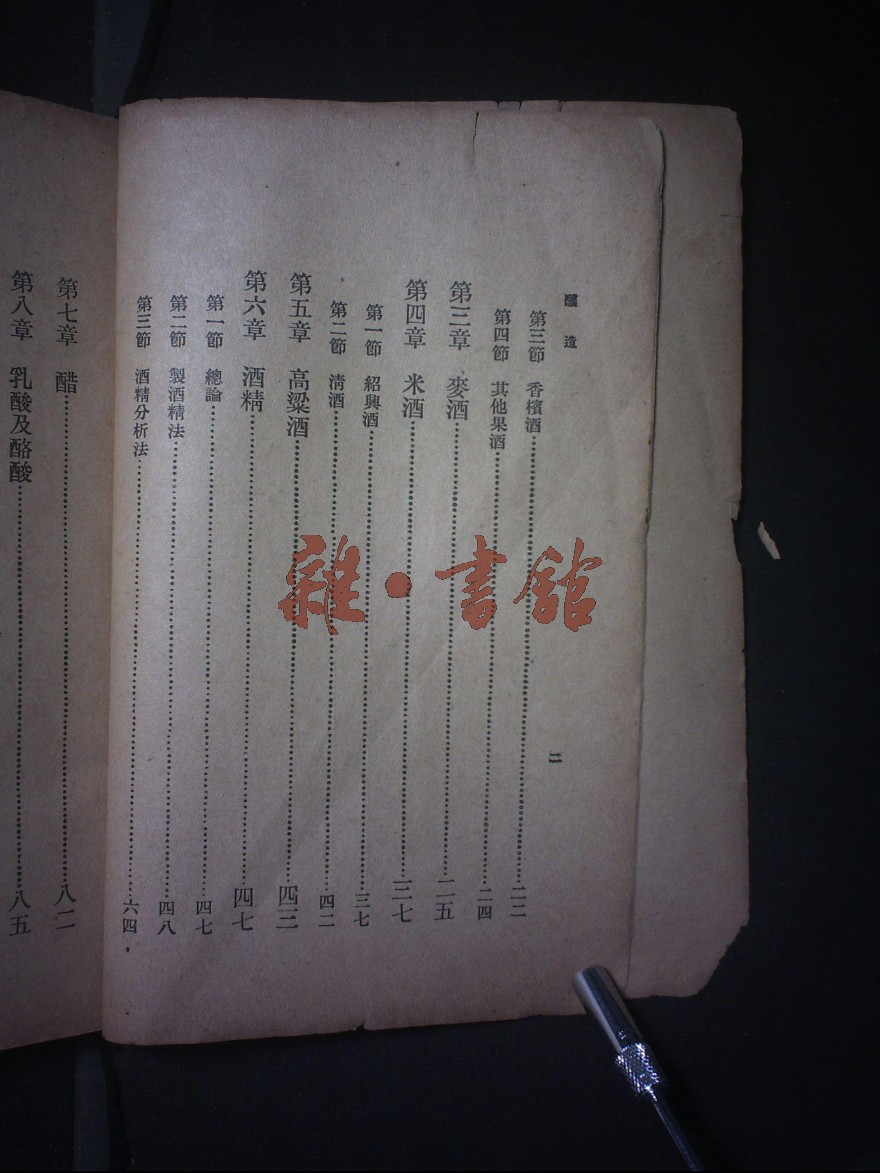 釀造
二
第三節 香檳酒……二三
第四節 其他果酒……二四
第三章 麥酒……二五
第四章 米酒……三七
第一節 紹興酒……三七
第二節 淸酒……四二
第五章 高粱酒……四三
第六章 酒精……四七
第一節 總論……四七
第二節 製酒精法……四八
第三節 酒精分析法……六四
第七章 醋……八二
第八章 乳酸及酪酸……八五
雜·書館